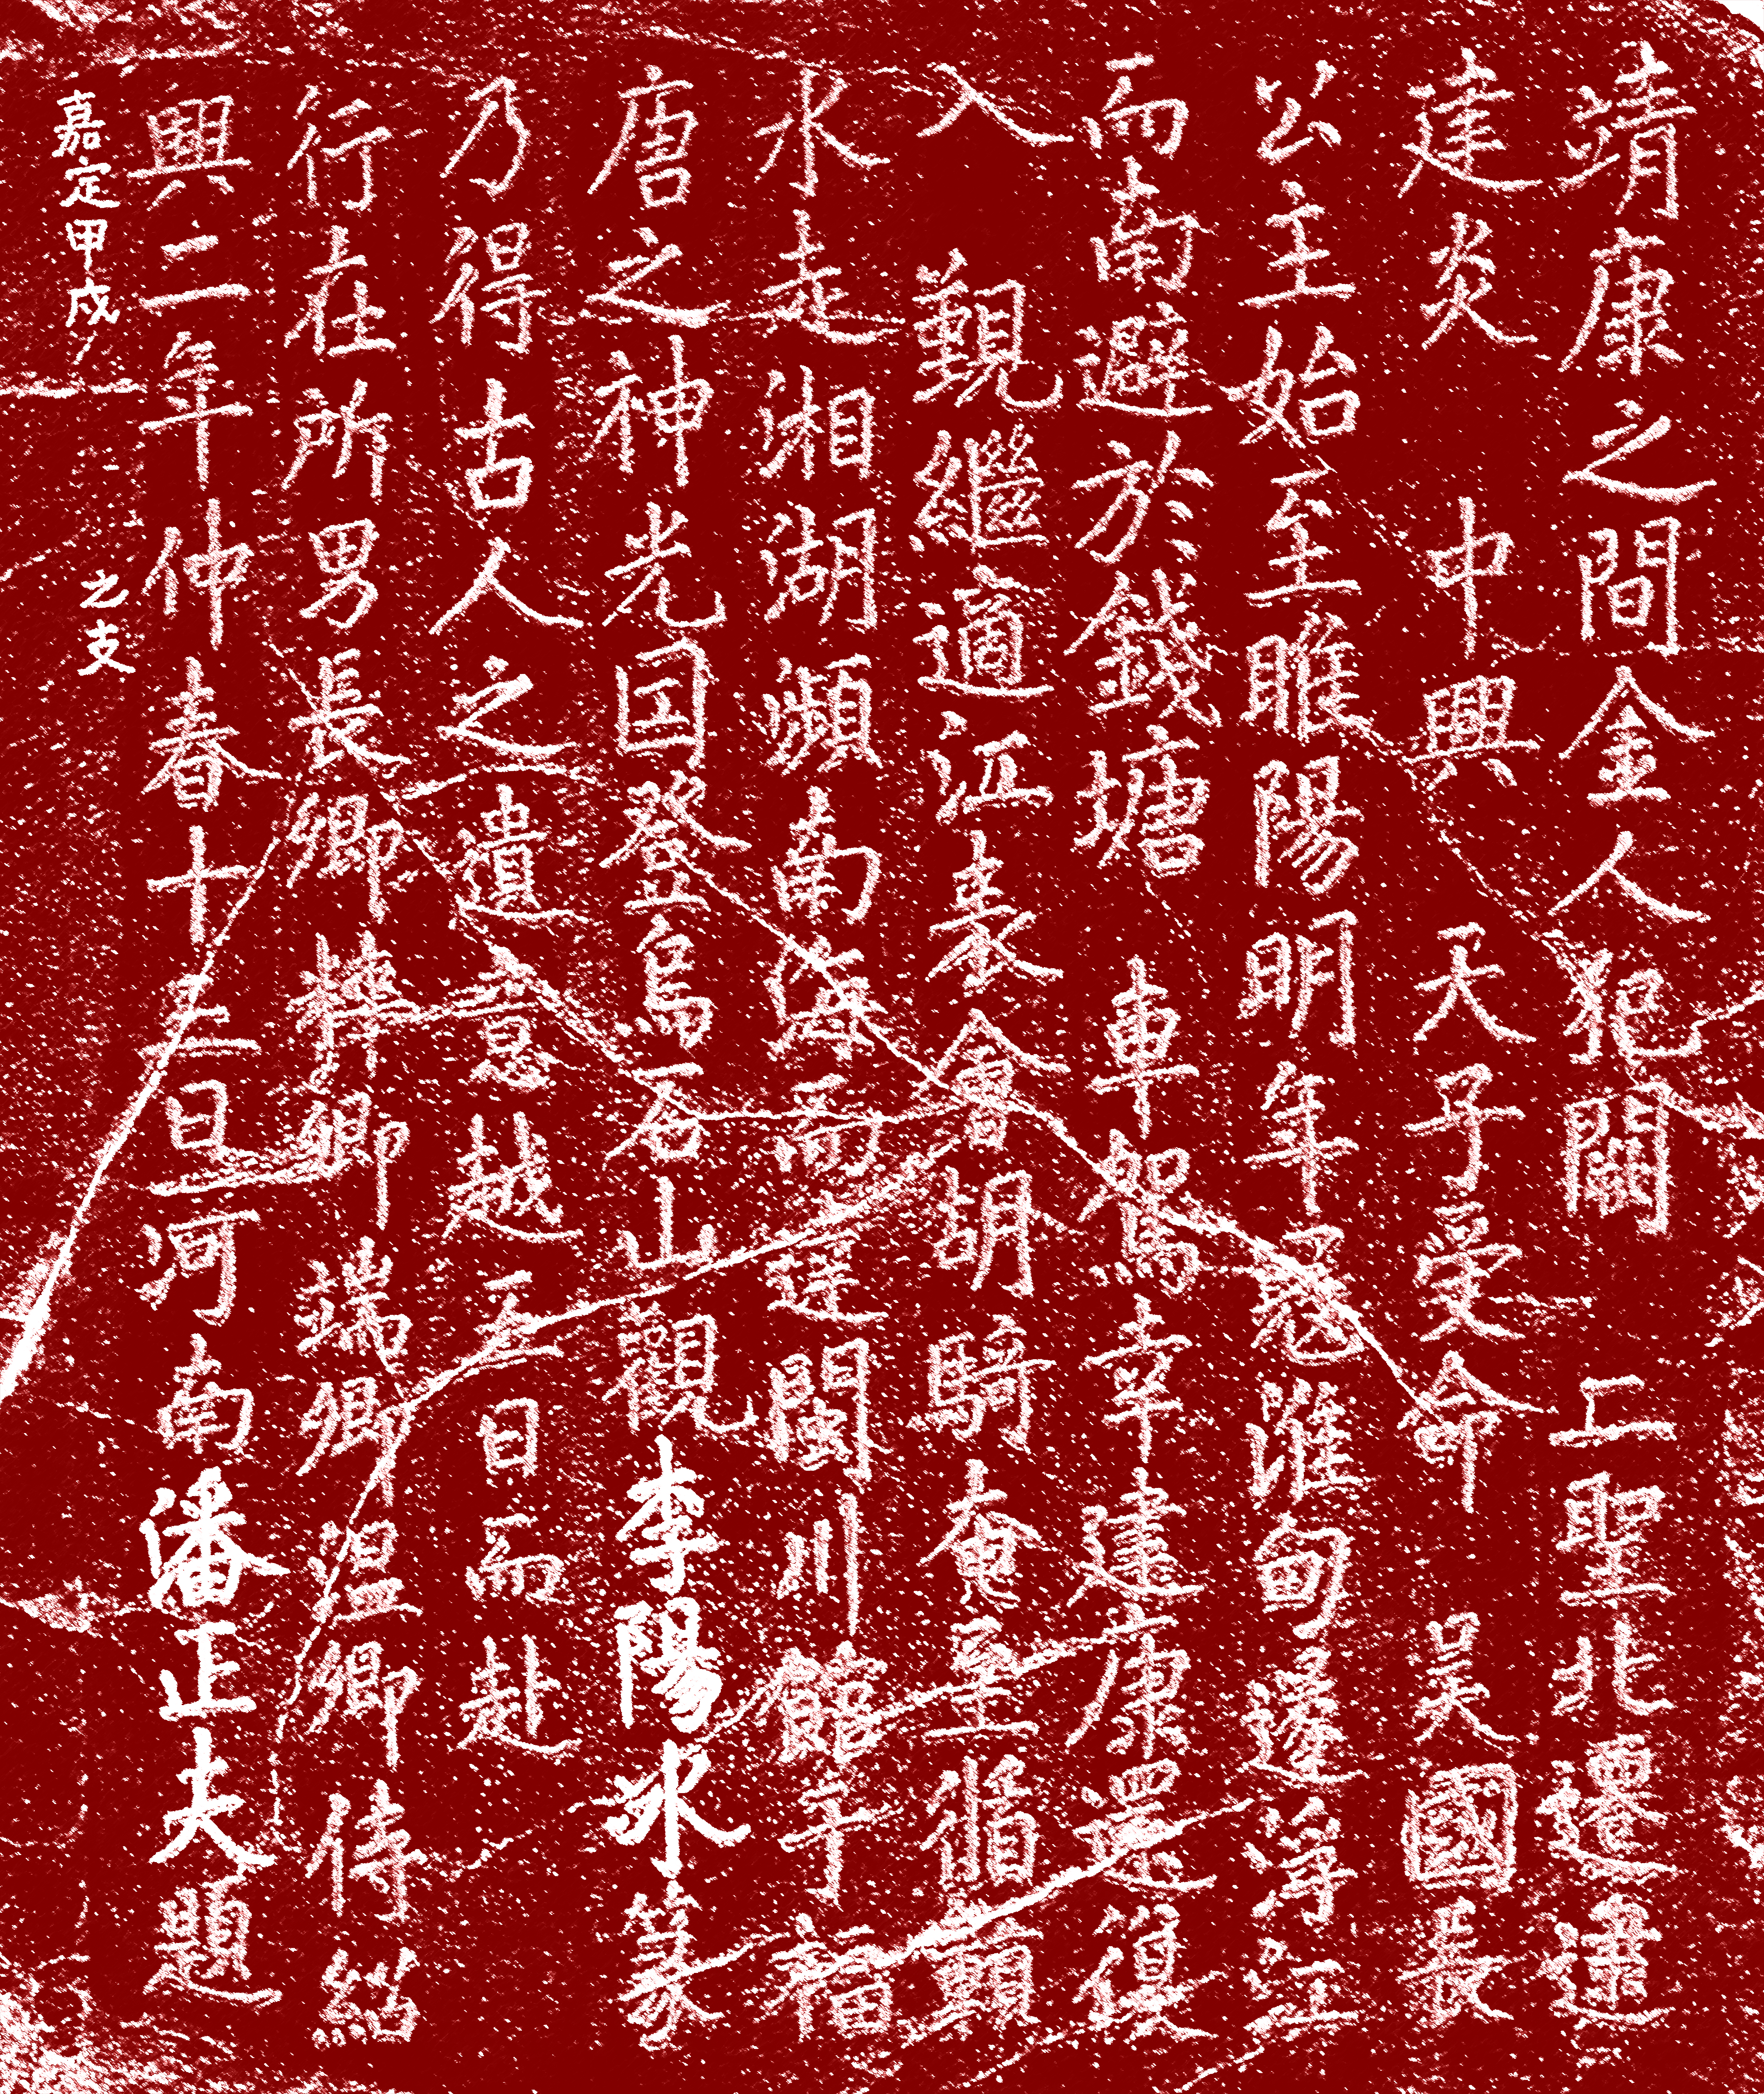 靖康之間金人犯闕 二聖北遷逮
建炎 中興 天子受命 吳國長
公主始至睢陽明年寇淮甸遂浮江
而南避於錢塘 車駕幸建康還復
入 覲繼適江表會胡騎奄至循贛
水走湘湖瀕南海而達閩川館于福
唐之神光国登烏石山觀李陽冰篆
乃得古人之遺意越五日而赴
行在所男長卿粹卿端卿温卿侍紹
興二年仲春十五日河南潘正夫題
嘉定甲戌 之支